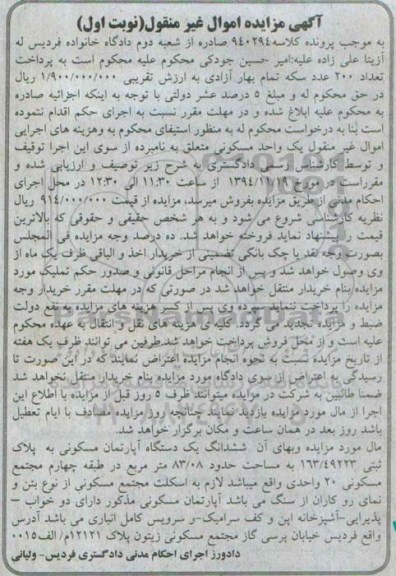 آگهی مزایده اموال غیر منقول(نوبت اول)
به موجب پرونده کلاسه ۹۴۰۲۹۴ صادره از شعبه دوم دادگاه خانواده فردیس له
آزیتا علی زاده علیه:امیر حسین جودکی محکوم علیه محکوم است به پرداخت
تعداد ۲۰۰ عدد سکه تمام بهار آزادی به ارزش تقریبی ۱/۹۰۰/۰۰۰/۰۰۰ ریال
در حق محکوم له و مبلغ ۵ درصد عشر دولتی با توجه به اینکه اجرائیه صادره
به محکوم علیه ابلاغ شده و در مهلت مقرر نسبت به اجرای حکم اقدام ننموده
است بنا به درخواست محکوم له به منظور استیفای محکوم به وهزینه های اجرایی
اموال غیر منقول یک واحد مسکونی متعلق به نامبرده از سوی این اجرا توقیف
و توسط کارشناس رسمی دادگستری به شرح زیر توصیف و ارزیابی شده و
مقرراست در مورخ ۱۳۹۴/۱۱/۱۹ از ساعت ۱۱:۳۰ الی ۱۲:۳۰ در محل اجرای
احکام مدنی از طریق مزایده بفروش میرسد، مزایده از قیمت ۹۱۴/۰۰۰/۰۰۰ ریال
نظریه کارشناسی شروع می شود و به هر شخص حقیقی و حقوقی که بالاترین
قیمت را پیشنهاد نماید فروخته خواهد شد. ده درصد وجه مزایده فی المجلس
بصورت وجه نقد یا چک بانکی تضمینی از خریدار اخذ و الباقی ظرف یک ماه از
وی وصول خواهد شد و پس از انجام مراحل قانونی و صدور حکم تملیک مورد
مزایده بنام خریدار منتقل خواهد شد در صورتی که در مهلت مقرر خریدار وجه
مزایده را پرداخت ننماید سپرده وی پس از کسر هزینه های مزایده به نفع دولت
ضبط و مزایده تجدید می گردد. کلیه ی هزینه های نقل و انتقال به عهده محکوم
علیه است و از محل فروش پرداخت خواهد شد.طرفین می توانند ظرف یک هفته
از تاریخ مزایده نسبت به نحوه انجام مزایده اعتراض نمایند که در این صورت تا
رسیدگی به اعتراض از سوی دادگاه مورد مزایده بنام خریدار منتقل نخواهد شد
ضمنا طالبین به شرکت در مزایده میتوانند ظرف ۵ روز قبل از مزایده با اطلاع این
اجرا از مال مورد مزایده بازدید نمایند چنانچه روز مزایده مصادف با ایام تعطیل
باشد روز بعد در همان ساعت و مکان برگزار خواهد شد.
مال مورد مزایده وبهای آن ششدانگ یک دستگاه آپارتمان مسکونی به پلاک
ثبتی ۱۶۳/۴۹۲۲۳ به مساحت حدود ۸۳/۰۸ متر مربع در طبقه چهارم مجتمع
مسکونی ۲۰ واحدی واقع میباشد لازم به اسکلت مجتمع مسکونی از نوع بتن و
نمای رو کاران از سنگ می باشد آپارتمان مسکونی مذکور دارای دو خواب –
پذیرایی-آشپزخانه اپن و کف سرامیک-و سرویس کامل انباری می باشد آدرس
واقع فردیس خیابان پرسی گاز مجتمع مسکونی زیتون پلاک ۱۲۱۲۱م/الف۰۰۱۵
دادورز اجرای احکام مدنی دادگستری فردیس- ولیانی
ParsNamadData